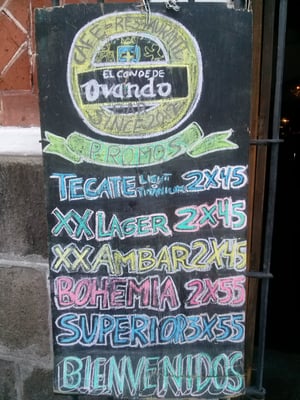 CAFE-RESTAURANTE
EL CONDE DE
Ovando
SINCE
PROMOS
TECATE LIGHT TITANIUM 2X45
XX LAGER 2X45
XX AMBAR 2X45
BOHEMIA 2X55
SUPERIOR 3X55
BIENVENIDOS